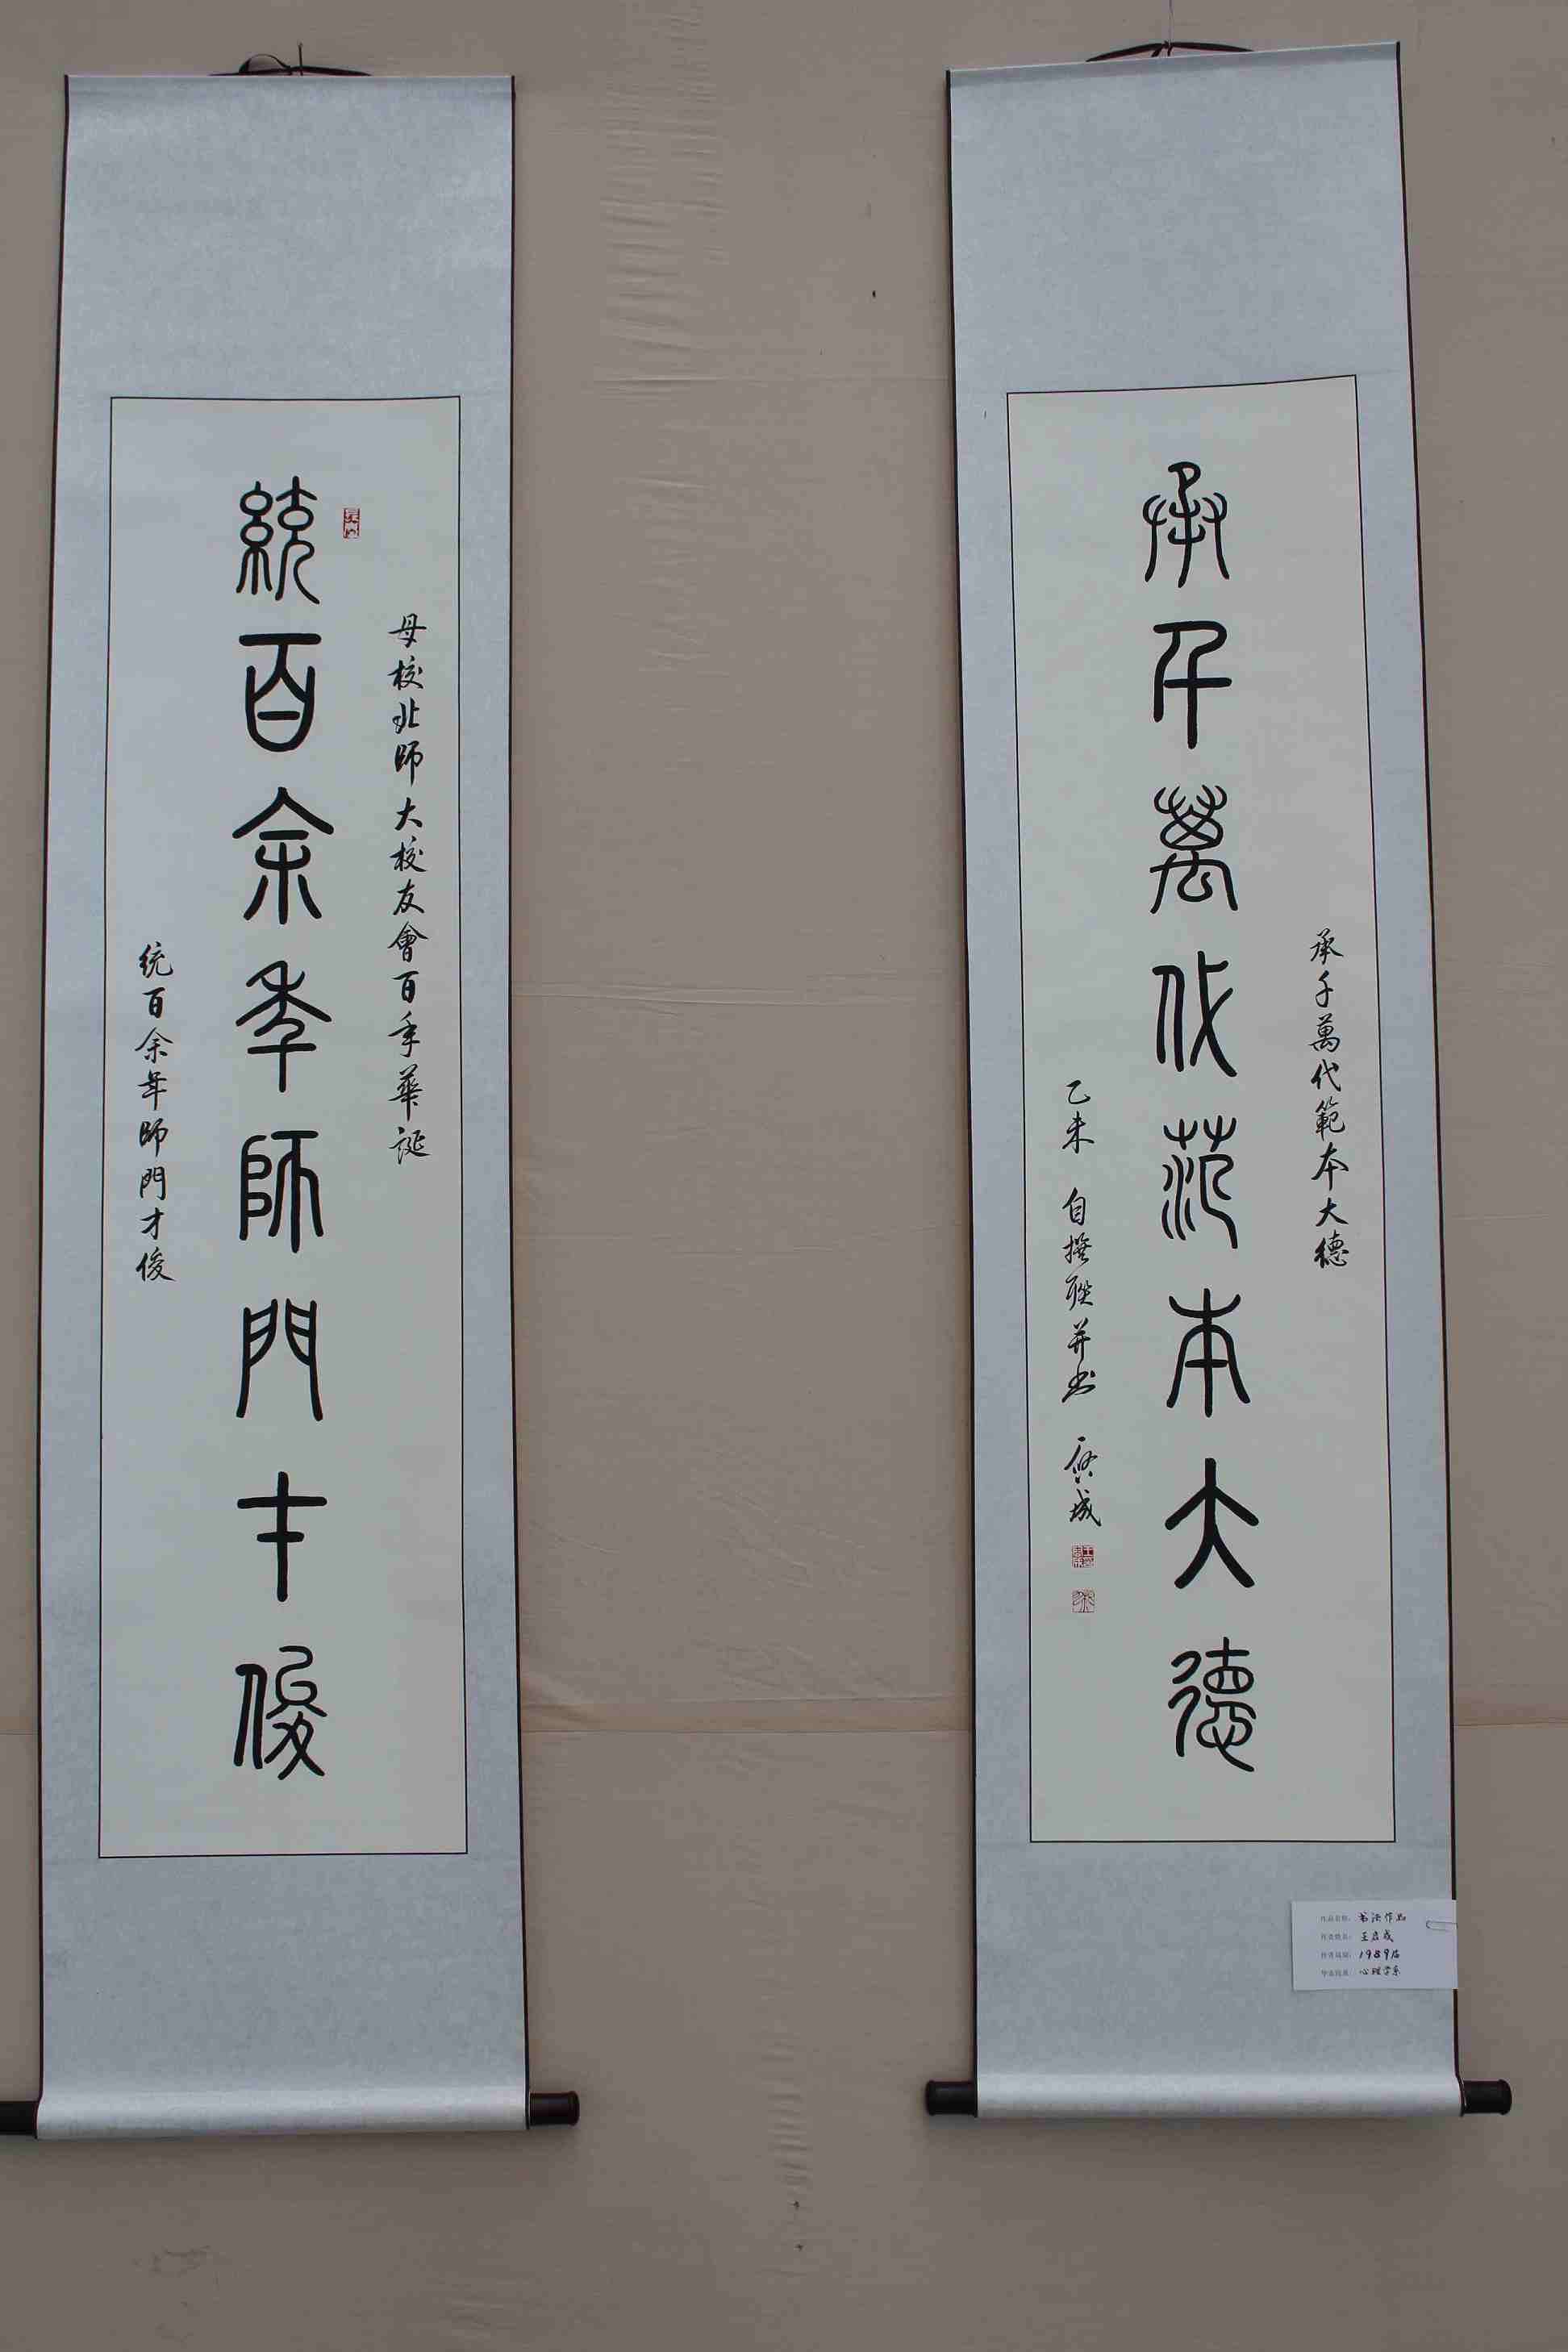 承千萬代範本大德
承千萬代範本大德
乙未 自撰联并书 啟成
母校北師大校友會百年華誕
統百余年師門才俊
统百余年師門才俊
作品名称：书法作品
作者姓名：王启成
1989届
心理学系